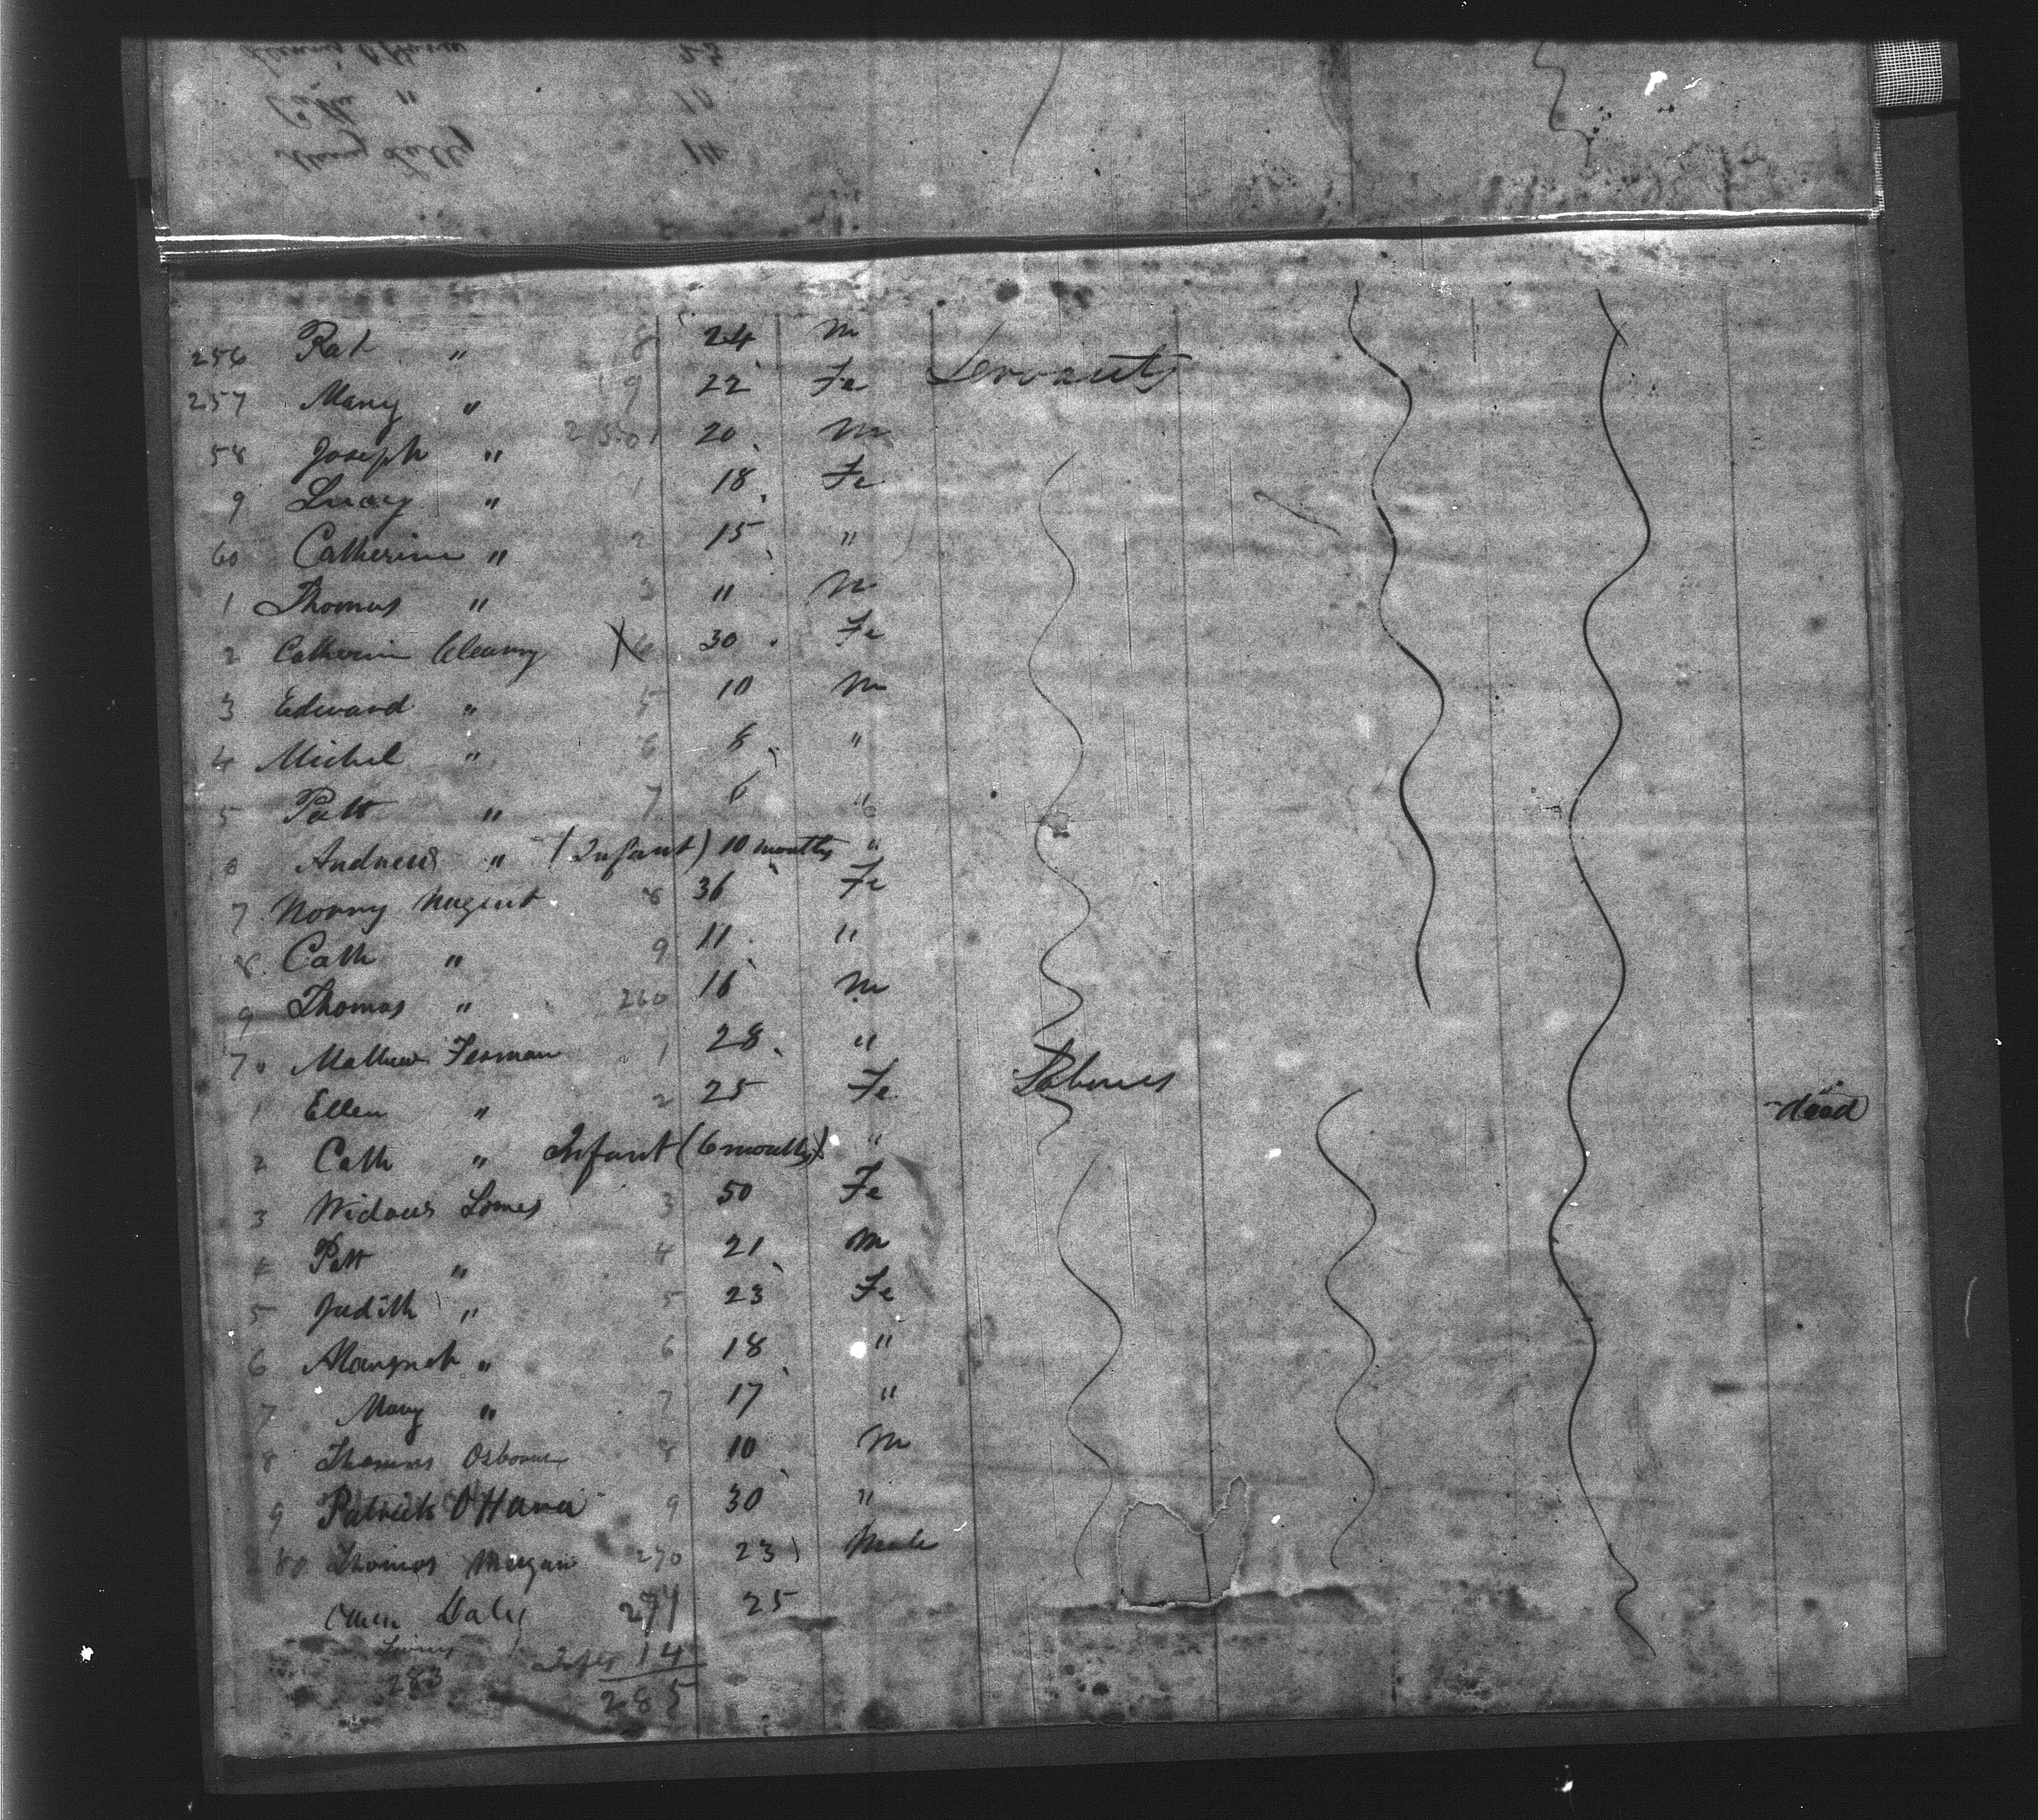 14
256 Pat " 8 24 m
257 Mary " 9 22 Fe Servants
58 Joseph " 250 20 m
9 Lucy " 1 18 Fe
60 Catherine " 2 15 "
1 Thomas " 3 " m
2 Catherin Cleamy X 30 Fe
3 Edward " 5 10 m
4 Michel " 6 8 "
5 Patt " 7 6 "
Andrew " (Infant) 10 months "
7 Norry Nugent 8 36 Fe
8 Cath " 9 11 "
9 Thomas " 260 16 m
70 Mathew Fesman 1 28 "
1 Ellen " 2 25 Fe dead
2 Cath " Infant (6 months) "
3 Widows Lomes 3 50 Fe
4 Patt " 4 21 m
5 Judith " 5 23 Fe
6 Margret " 6 18 "
7 Mary " 7 17 "
8 Thomas Osborne 8 10 m
9 Patrick O Hara 9 30 "
80 Thomas Morgan 270 23 Male
Owen Daly 271 25
14
283 285